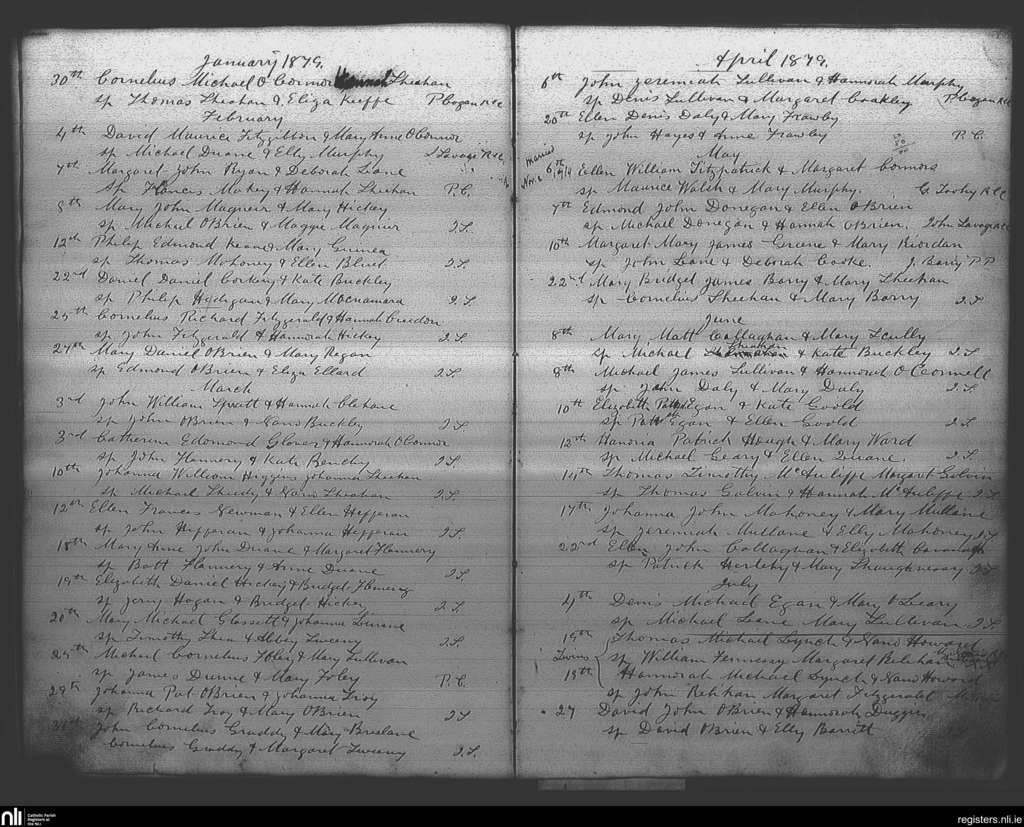 January 1879.
30th Cornelius Michael O Connor Hannah Sheahan
sp Thomas Sheahan & Eliza Keeffe P Cogan R.C.C
February
4th David Maurice Fitzgibbon & Mary Anne O Connor
sp Michael Duane & Elly Murphy J Savage R.C.C
7th Margaret John Ryan & Deborah Leane
sp Francis Makey & Hannah Sheehan P.C.
8th Mary John Magneir & Mary Hickey
sp Michael O Brien & Maggie Magnier J.S.
12th Philip Edmond Keane & Mary Guinea
sp Thomas Mahoney & Ellen Bluet J.S.
22nd Daniel Daniel Corkery & Kate Buckley
sp Philip & Mary McNamara J.S.
25th Cornelius Richard Fitzgerald & Hannah Creedon
sp John Fitzgerald & Hannorah Hickey J.S
27th Mary Daniel O Brien & Mary Regan
sp Edmond O Brien & Eliza Ellard J.S.
March
3rd John William Spratt & Hannah Clehane
sp John O Brien & Nano Buckley J.S.
3rd Catherine Edmond Glover & Hannorah O Connor
sp John Flannery & Kate J.S.
10th Johanna William Higgins Johanna Sheehan
sp Michael Sheedy & Nano Sheahan J.S.
12th Ellen Francis Newman & Ellen Hefferan
sp John Hefferan & Johanna Hefferan J.S.
18th Mary Anne John Duane & Margaret Flannery
sp Batt Flannery & Anne Duane J.S.
19th Elizabeth Daniel Hickey & Bridget
sp Jerry Hogan & Bridget Hickey J.S
20th Mary Michael Glassett & Johanna
sp Timothy Shea & Abbey Sweeny J.S.
25th Michael Cornelius Foley & Mary Sullivan
sp James Dunne & Mary Foley P.C.
29th Johanna Pat O Brien & Johanna Troy
sp Richard Troy & Mary O Brien J.S
31st John Cornelius Graddy & Mary
Cornelius Graddy & Margaret Sweeny J.S.
April 1879.
6th John Jeremiah Sullivan & Hannorah Murphy
sp Denis Sullivan & Margaret Coakley P Cogan R.C.C
20th Ellen Denis Daly & Mary Frawley
sp John Hayes & Anne Frawley P.C.
May
married
6th Ellen William Fitzpatrick & Margaret Connors
sp Maurice Walsh & Mary Murphy. G Twohy R.C.C
7th Edmond John Donegan & Ellen O Brien
sp Michael Donegan & Hannah O Brien. John Savage R.C.C
10th Margaret Mary James Greene & Mary Riordan
sp John Leane & Deborah Cooke. J. Barry P.P
22nd Mary Bridget James Barry & Mary Sheehan
sp Cornelius Sheehan & Mary Barry J.S
June
8th Mary Matt Callaghan & Mary Scully
sp Michael Sheahan & Kate Buckley J.S
8th Michael James Sullivan & Hannorah O Connell
sp. John Daly & Mary Daly J.S.
10th Elizabeth Patt Egan & Kate Goold
sp Patt Egan & Ellen Goold J.S
12th Hanoria Patrick Hough & Mary Ward
sp Michael Geary & Ellen Duane. J.S
14th Thomas Timothy McAuliffe Margaret Galvin
sp Thomas Galvin & Hannah McAuliffe J.S
17th Johanna John Mahoney & Mary Mullane
sp Jeremiah Mullane & Elly Mahoney J.S
22nd Ellen John Callaghan & Elizabeth Cavanagh
sp Patrick Herlehy & Mary Shaughnessy J.S
July
4th Denis Michael Egan & Mary O Leary
sp Michael Leane Mary Sullivan J.S
19th Thomas Michael Lynch & Nano Howard
Twins
sp William Fennessy Margaret Relihan
19th Hannorah Michael Lynch & Nano Howard
sp John Relihan Margaret Fitzgerald
27 David John O Brien & Hannorah Duggan
sp David O Brien & Elly Barrett
nli
Catholic Parish
Registers at
the NLI
registers.nli.ie